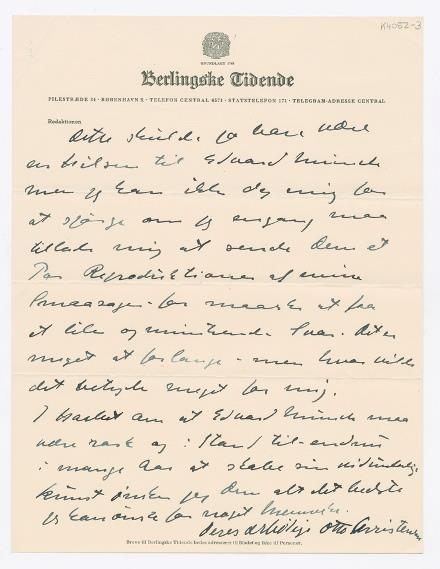 K4052-3
GRUNDLAGT 1749
Berlingske Tidende
PILESTRÆDE 34 · KØBENHAVN K · TELEFON CENTRAL 6571 · STATSTELEFON 171 · TELEGRAM-ADRESSE CENTRAL
Redaktionen
Dette skulde jo bare være
en hilsen til Edvard Munch
men jeg kan ikke dy mig for
at spørge om jeg engang maa
tillade mig at sende Dem et
Par Reproduktioner af mine
Smaasager for maaske at faa
et lille opmuntrende Svar. Det er
meget at forlange - men hvor vilde
det betyde meget for mig.
I haabet om at Edvard Munch maa
være rask og i Stand til endnu
i mange Aar at skabe sin vidunderlige
kunst ønsker jeg Dem alt det bedste
jeg kan ønske for noget Menneske.
Deres ærbødige Otto Christensen
Breve til Berlingske Tidende bedes adresseret til Bladet og ikke til Personer.